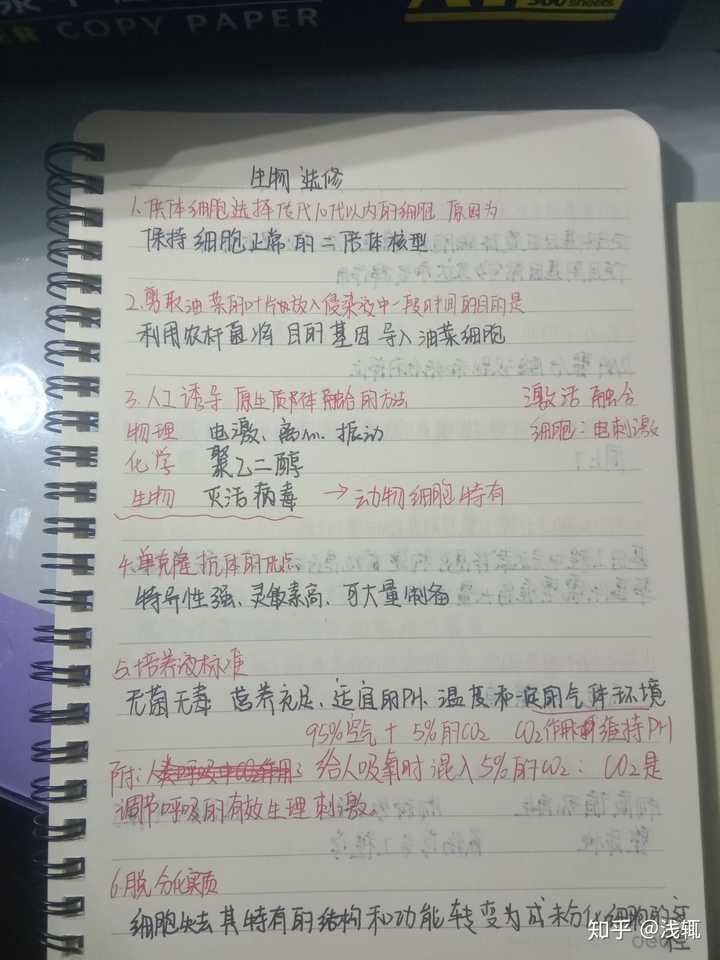 COPY PAPER
500 sheets
生物 选修
1. 供体细胞选择传代10代以内的细胞 原因为
保持细胞正常的二倍体核型
2. 剪取油菜的叶片放入侵染液中一段时间的目的是
利用农杆菌将目的基因导入油菜细胞
3. 人工诱导原生质体融合的方法 激活融合
物理 电激、离心、振动 细胞:电刺激
化学 聚乙二醇
生物 灭活病毒 → 动物细胞特有
4. 单克隆抗体的优点
特异性强、灵敏素高、可大量制备
5. 培养液标准
无菌无毒 营养充足、适宜的PH 温度和一定的气体环境
95%空气 + 5%的CO2 CO2作用 维持PH
附: 给人吸氧时混入5%的CO2: CO2是
调节呼吸的有效生理刺激。
6. 脱分化实质
细胞失去其特有的结构和功能转变为成未分化细胞的过
程
知乎 @浅辄